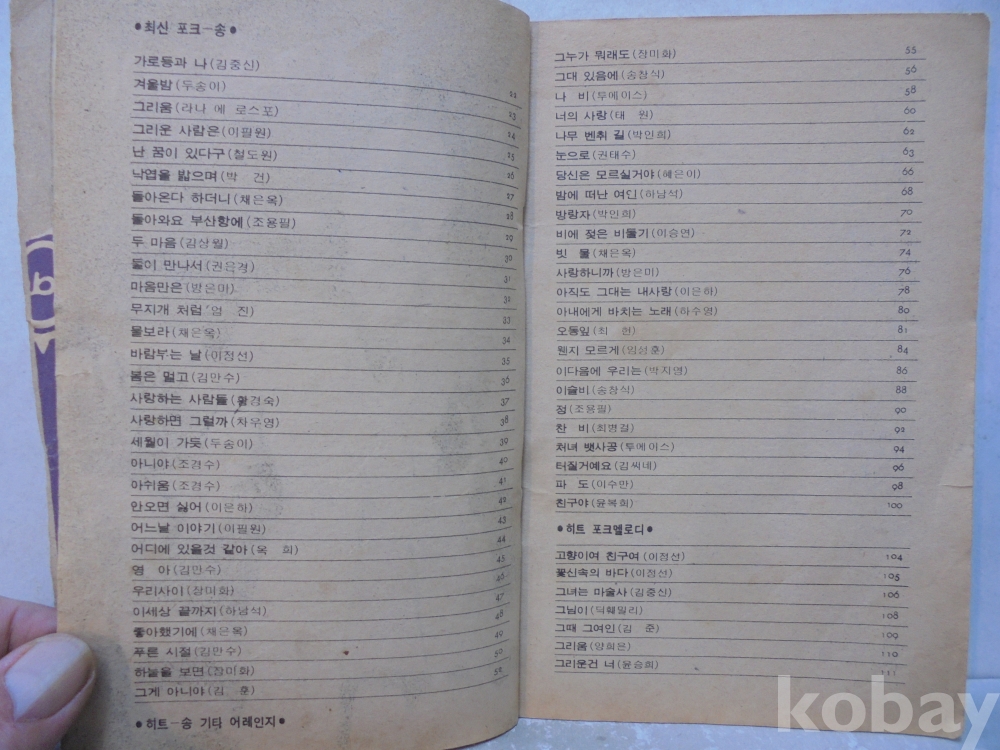 ●최신 포크—송●
가로등과 나(김중신) 22
겨울밤(두송이) 23
그리움(라나 에 로스포) 24
그리운 사람은(이필원) 25
난 꿈이 있다구(철도원) 26
낙엽을 밟으며(박 건) 27
돌아온다 하더니(채은옥) 28
돌아와요 부산항에(조용필) 29
두 마음(김상월) 30
둘이 만나서(권은경) 31
마음만은(방은미) 32
무지개 처럼(엄 진) 33
물보라(채은옥) 34
바람부는 날(이정선) 35
봄은 멀고(김만수) 36
사랑하는 사람들(황경숙) 37
사랑하면 그럴까(차우영) 38
세월이 가듯(두송이) 39
아니야(조경수) 40
아쉬움(조경수) 41
안오면 싫어(이은하) 42
어느날 이야기(이필원) 43
어디에 있을것 같아(옥 희) 44
영 아(김만수) 45
우리사이(장미화) 46
이세상 끝까지(하남석) 47
좋아했기에(채은옥) 48
푸른 시절(김만수) 49
하늘을 보면(장미화) 50
그게 아니야(김 훈) 52
●히트—송 기타 어레인지●
그누가 뭐래도(장미화) 55
그대 있음에(송창식) 56
나 비(투에이스) 58
너의 사랑(태 원) 60
나무 벤취 길(박인희) 62
눈으로(권태수) 63
당신은 모르실거야(혜은이) 66
밤에 떠난 여인(하남석) 68
방랑자(박인희) 70
비에 젖은 비둘기(이승연) 72
빗 물(채은옥) 74
사랑하니까(방은미) 76
아직도 그대는 내사랑(이은하) 78
아내에게 바치는 노래(하수영) 80
오동잎(최 헌) 81
웬지 모르게(임성훈) 84
이다음에 우리는(박지영) 86
이슬비(송창식) 88
정(조용필) 90
찬 비(최병걸) 92
처녀 뱃사공(투에이스) 94
터질거예요(김씨네) 96
파 도(이수만) 98
친구야(윤복희) 100
●히트 포크멜로디●
고향이여 친구여(이정선) 104
꽃신속의 바다(이정선) 105
그녀는 마술사(김중신) 106
그님이(딕훼밀리) 108
그때 그여인(김 준) 109
그리움(양희은) 110
그리운건 너(윤승희) 111
kobay